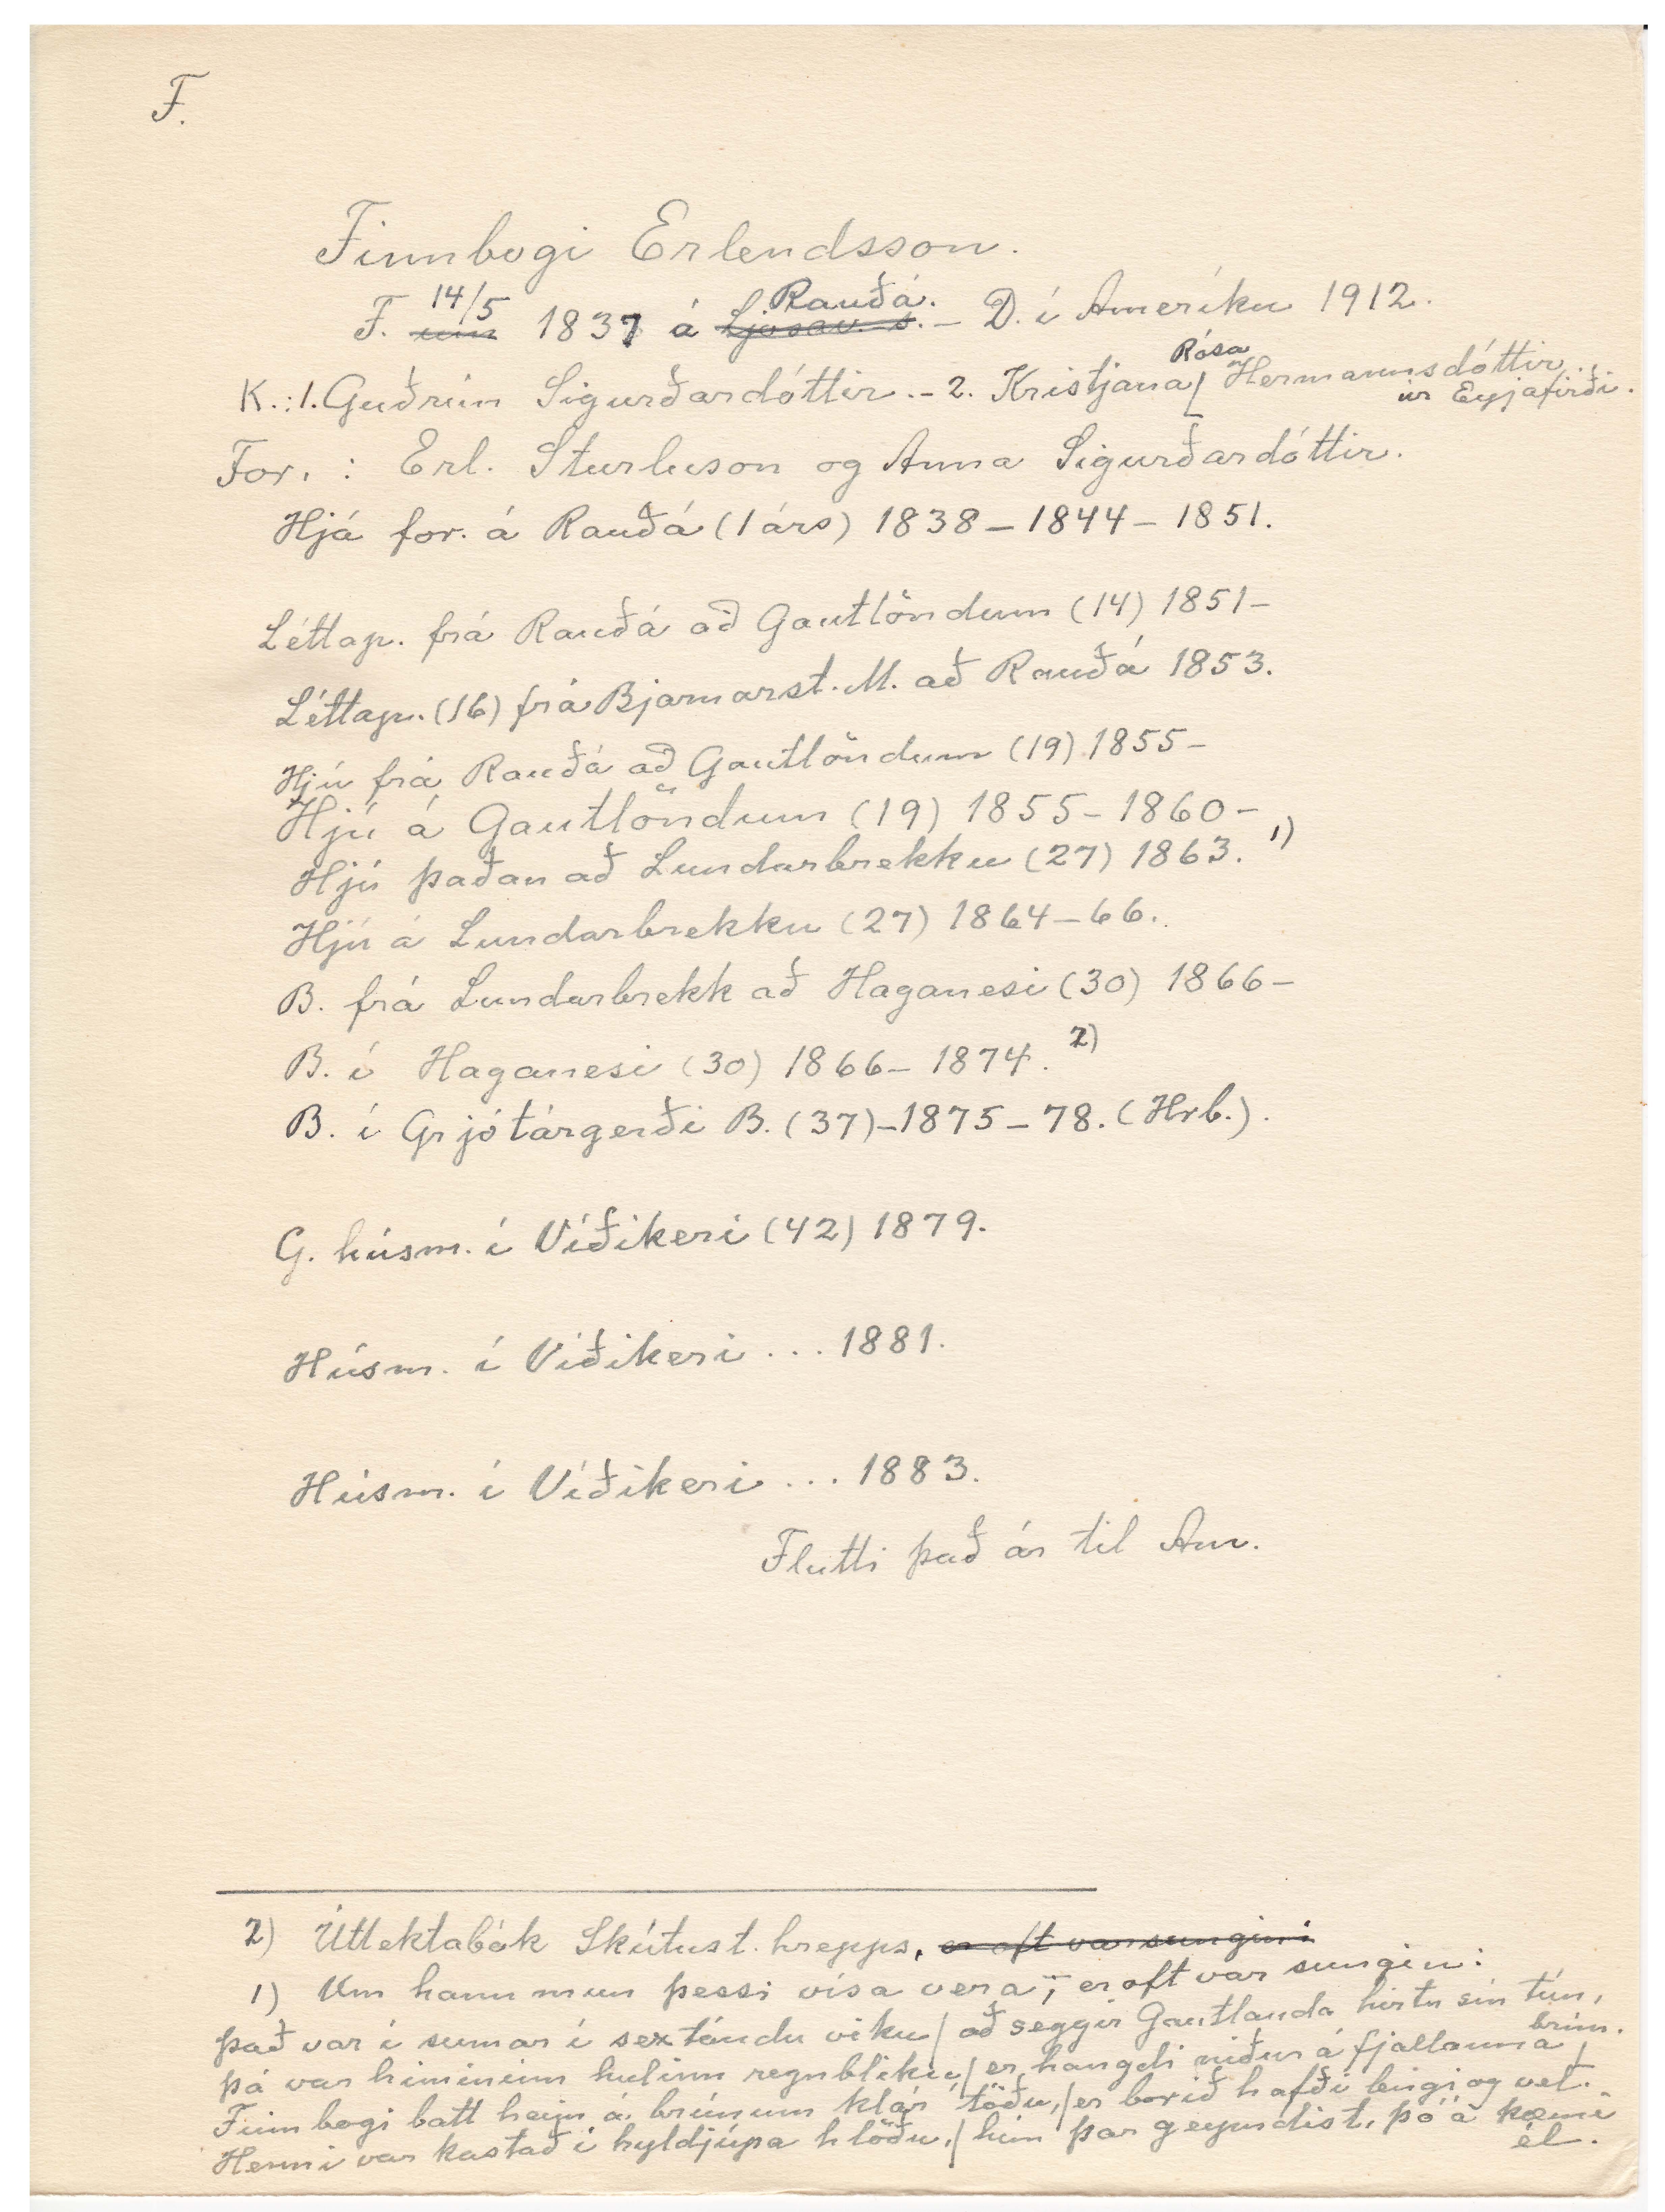 F.
Finnbogi Erlendsson.
F. ~~um~~ 14/5 1837 á ~~Ljósav. s.~~ Rauðá. – D. í Ameríku 1912.
K.: 1. Guðrún Sigurðardóttir. – 2. Kristjana / Rósa Hermannsdóttir
úr Eyjafirði.
For. : Erl. Sturluson og Anna Sigurðardóttir.
Hjá for. á Rauðá (1 árs) 1838 – 1844 – 1851.
Léttap. frá Rauðá að Gautlöndum (14) 1851 –
Léttap. (16) frá Bjarnarst. M. að Rauðá 1853.
Hjú frá Rauðá að Gautlöndum (19) 1855 –
Hjú á Gautlöndum (19) 1855 – 1860 –
Hjú þaðan að Lundarbrekku (27) 1863. 1)
Hjú á Lundarbrekku (27) 1864 – 66.
B. frá Lundarbrekk að Haganesi (30) 1866 –
B. í Haganesi (30) 1866 – 1874. 2)
B. í Grjótárgerði B. (37) – 1875 – 78. (Hrb.).
G. húsm. í Víðikeri (42) 1879.
Húsm. í Víðikeri ... 1881.
Húsm. í Víðikeri ... 1883.
Flutti það ár til Am.
2) Úttektabók Skútust. hrepps, ~~er oft var sungin:~~
1) Um hann mun þessi vísa vera, er oft var sungin:
Það var í sumar í sextándu viku / að seggir Gautlanda hirtu sín tún,
þá var himininn hulinn regnbliku / er hangdi niður á fjallanna / brún.
Finnbogi batt heyn á brúnum klár töðu, / er borið hafði lengi og vel.
Henni var kastað í hyldjúpa hlöðu, / hún þar geymdist, þó á kæmi
él.